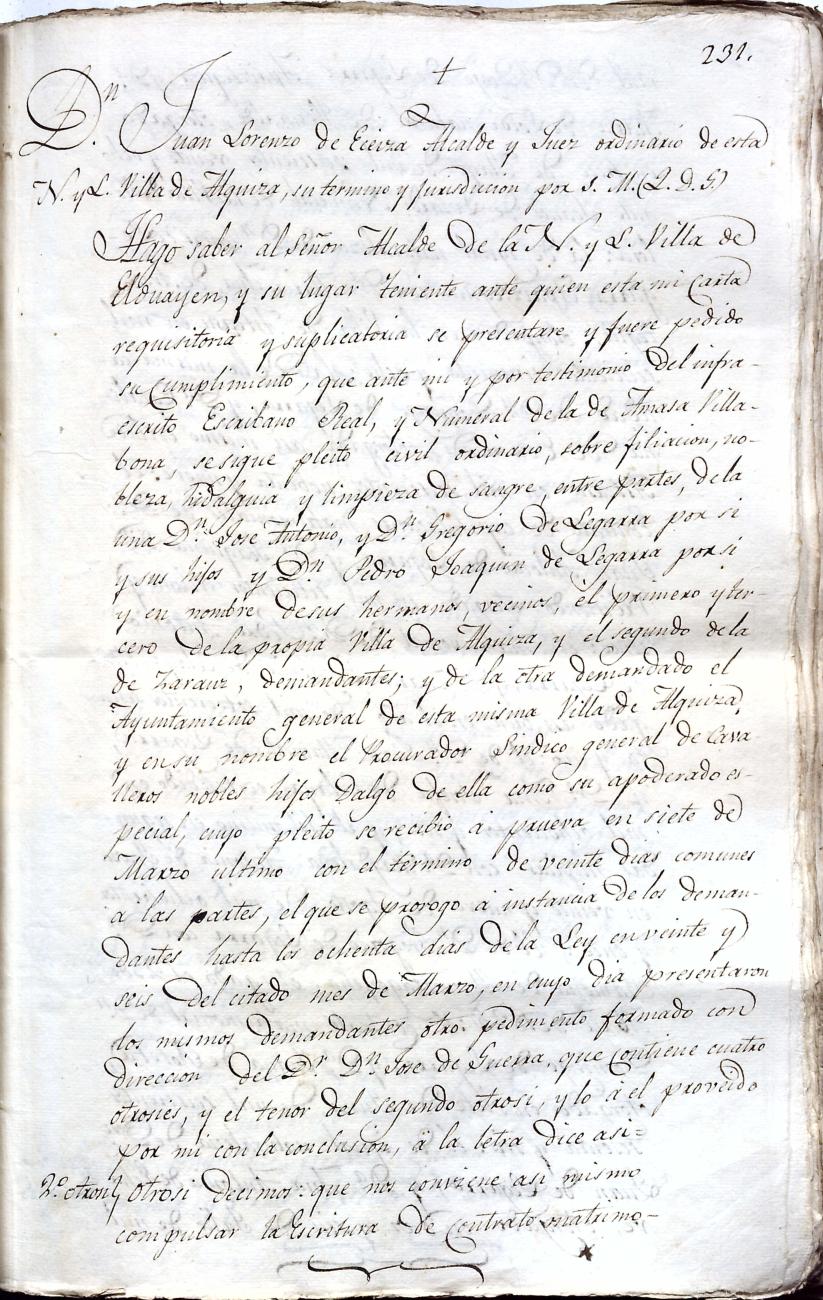 231.
+
Dn. Juan Lorenzo de Eceiza Alcalde y Juez ordinario de esta
N. y L. Villa de Alquiza, su termino y jurisdicion por S. M. (Q. D. G.)
Hago saber al Señor Alcalde de la N. y L. Villa de
Elduayen, y su lugar teniente ante quien esta mi Carta
requisitoria y suplicatoria se presentare y fuere pedido
su Cumplimiento, que ante mi y por testimonio del infra-
escrito Escribano Real, y Numeral de la de Amasa Villa-
bona, se sigue pleito civil ordinario, sobre filiacion, no-
bleza, hidalguia y limpieza de sangre, entre partes, de la
una Dn. Jose Antonio, y Dn. Gregorio de Legarra por si
y sus hijos y Dn. Pedro Joaquin de Legarra por si
y en nombre de sus hermanos, vecinos, el primero y ter-
cero de la propia Villa de Alquiza, y el segundo de la
de Zarauz, demandantes; y de la otra demandado el
Ayuntamiento general de esta misma Villa de Alquiza,
y en su nombre el Procurador Sindico general de Cava-
lleros nobles hijos Dalgo de ella como su apoderado es-
pecial, cuyo pleito se recibió á prueva en siete de
Marzo ultimo con el término de veinte dias comunes
a las partes, el que se prorogo á instancia de los deman-
dantes hasta los ochenta dias de la Ley en veinte y
seis del citado mes de Marzo, en cuyo dia presentaron
los mismos demandantes otro pedimento formado con
dirección del Dr. Dn. Jose de Guerra, que contiene cuatro
otrosies, y el tenor del segundo otrosi, y lo á él proveido
por mi con la conclusion, á la letra dice asi=
2.º otrosi Otrosi decimos: que nos conviene asi mismo
compulsar la Escritura de Contrato matrimo-